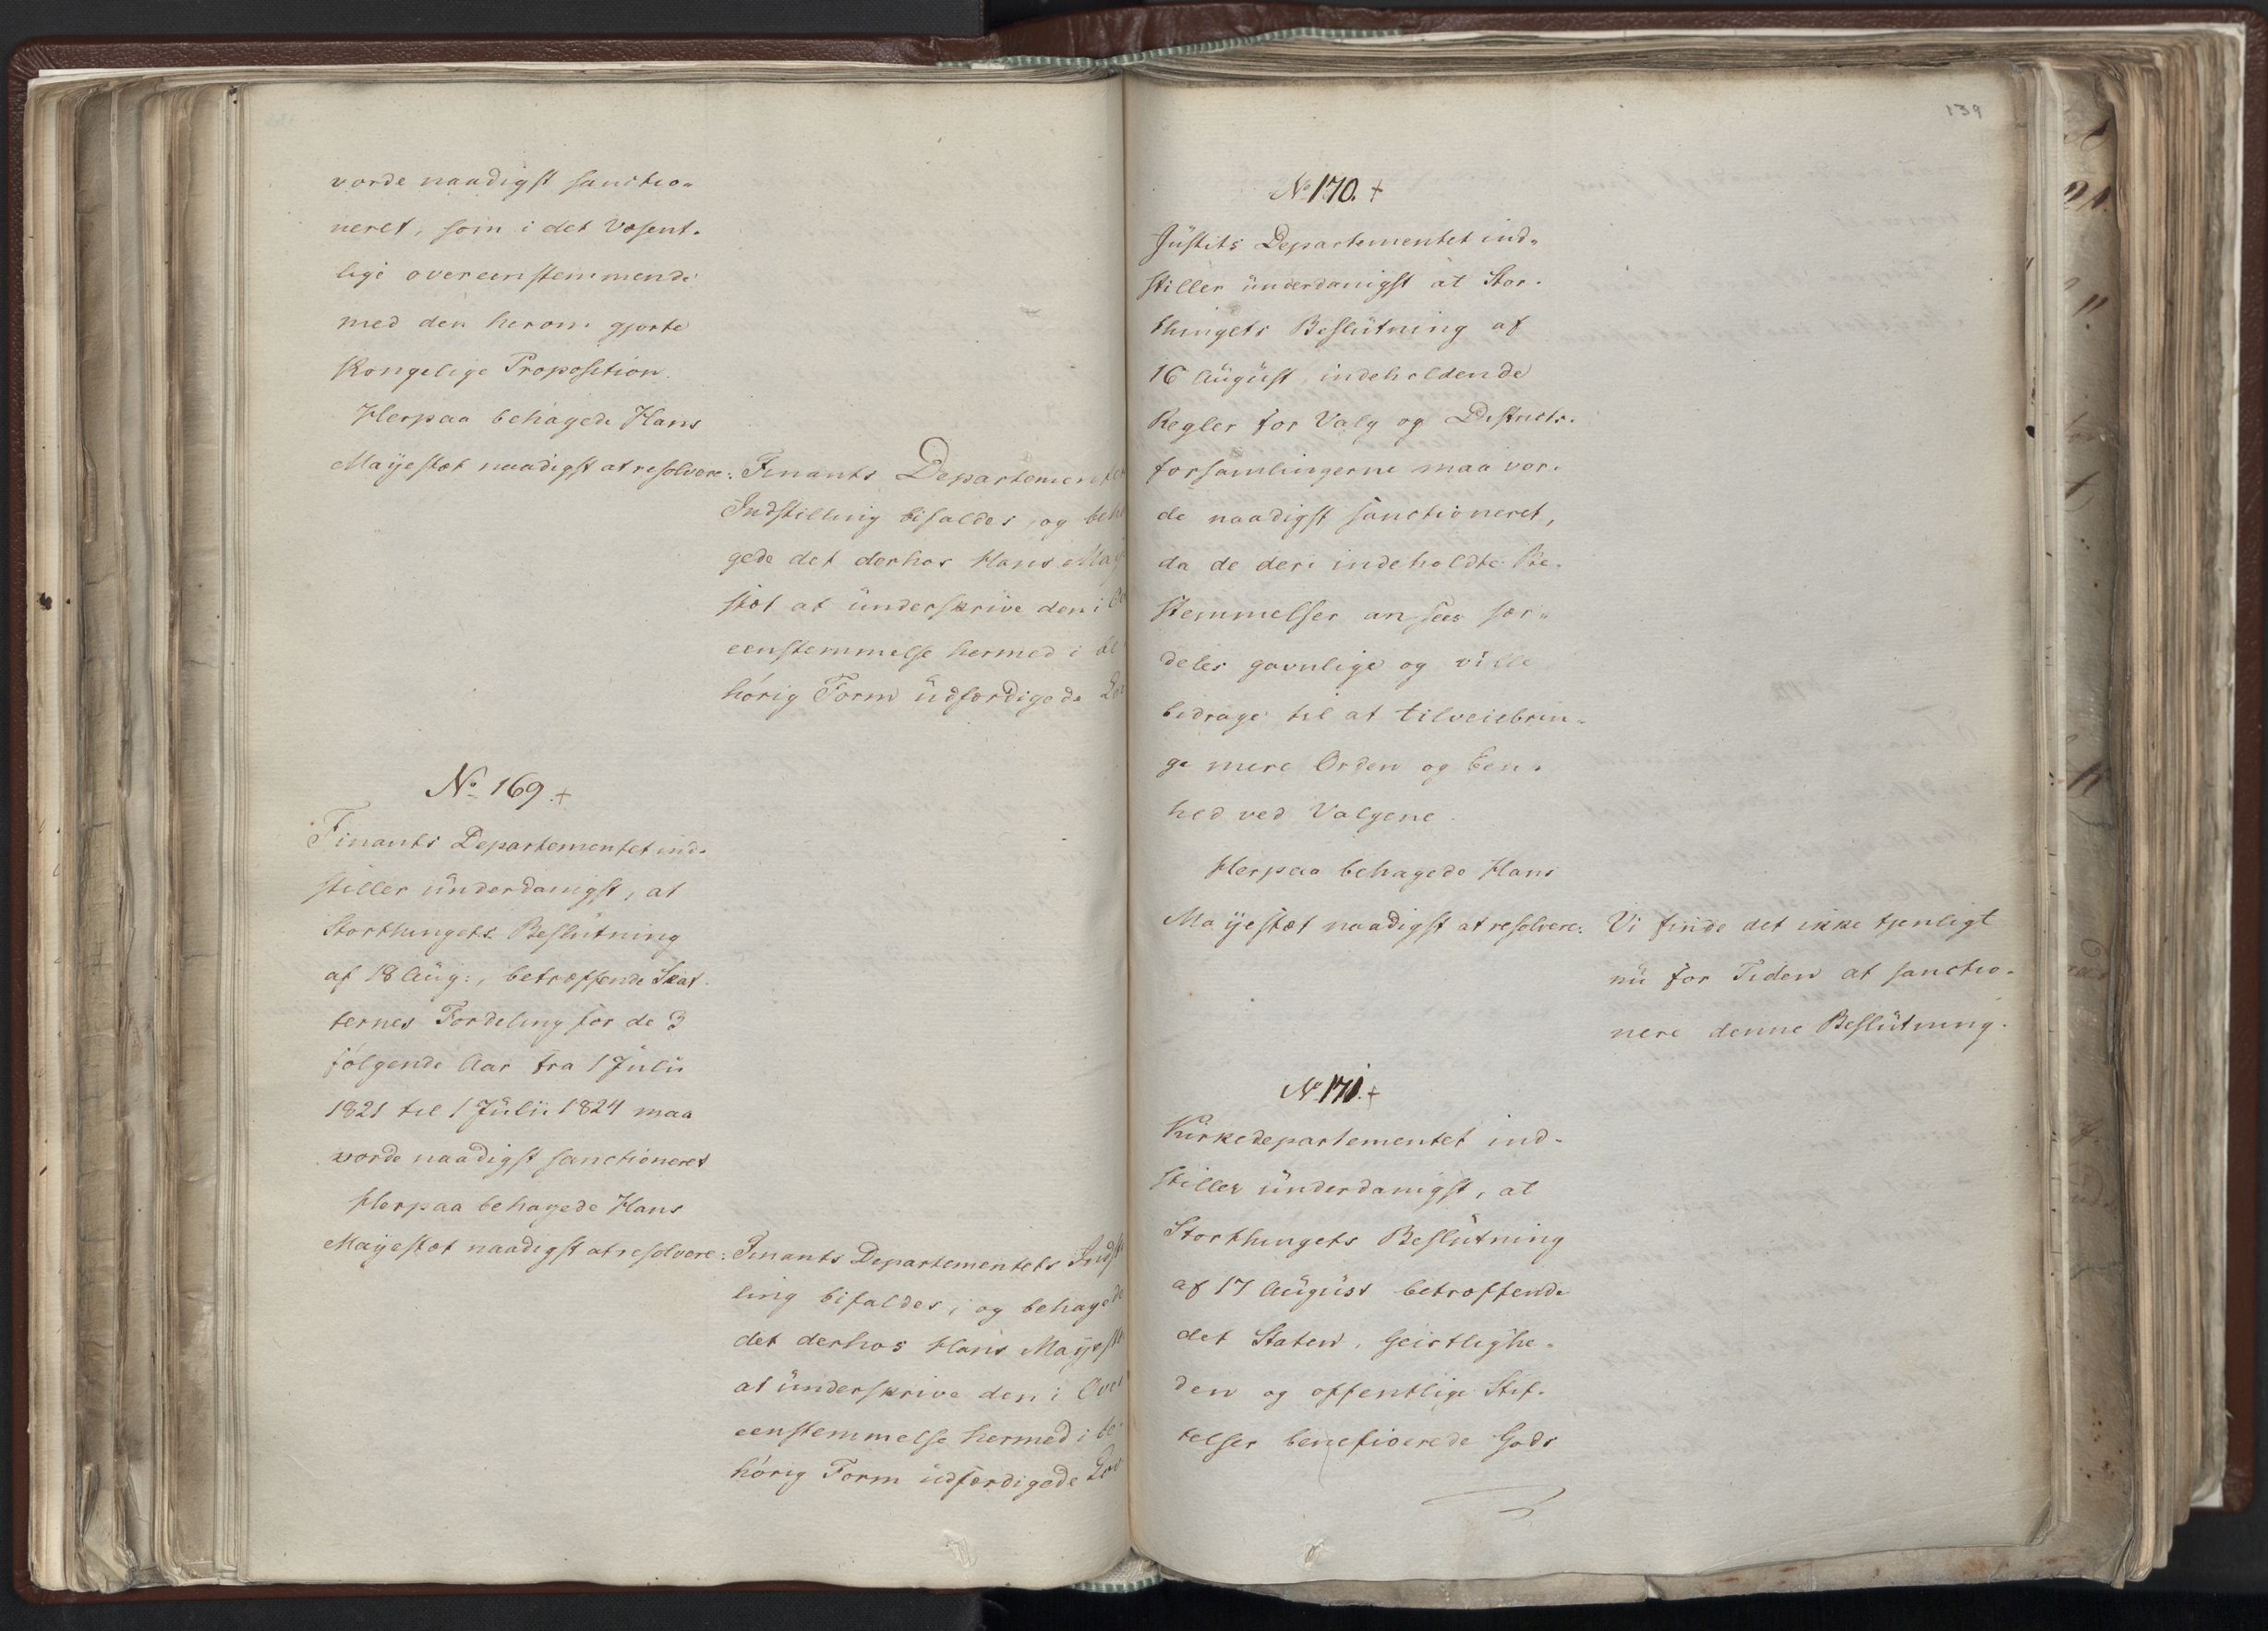 vorde naadigst sanctio„
neret, som i det Væsent„
lige overeenstemmende
med den herom gjorte
Kongelige Proposition.
Herpaa behagede Hans
Mayestæt naadigst at resolvere:
Finants Departementet
Indstilling bifaldes, og beha
gede det derhos Hans May
stæt at ünderskrive den i O
eenstemmelse hermed i be
hørig Form üdfærdigede Lov
No 169. +
Finants Departementet ind„
stiller ünderdanigst, at
Storthingets Beslütning
af 18 Aüg:, betræffende Skat
ternes Fordeling for de 3
følgende Aar fra 1 Jülii
1821 til 1 Jülii 1824 maa
vorde naadigst sanctioneret
Herpaa behagede Hans
Mayestæt naadigst at resolvere:
Finants Departementets Indst
ling bifaldes, og behagede
det derhos Hans Mayestæ
at ünderskrive den i Over
eenstemmelse hermed i be
hørig Form üdfærdigede Lov
139
No 170. +
Jüstits Departementet ind„
stiller ünderdanigst at Stor„
thingets Beslütning af
16 Aügüst, indeholdende
Regler for Valg og Districts„
forsamlingerne maa vor„
de naadigst sanctioneret,
da de deri indeholdte Be„
stemmelser ansees sær„
deles gavnlige og ville
bidrage til at tilveiebrin„
ge mere Orden og Een„
hed ved Valgene.
Herpaa behagede Hans
Mayestæt naadigst at resolvere:
Vi finde det ikke tjenligt
nü for Tiden at sanctio„
nere denne Beslütning.
No 171. +
Kirkedepartementet ind„
stiller ünderdanigst, at
Storthingets Beslütning
af 17 Aügüst betræffende
det Staten, Geistlighe„
den og offentlige Stif„
telser beneficerede Gods